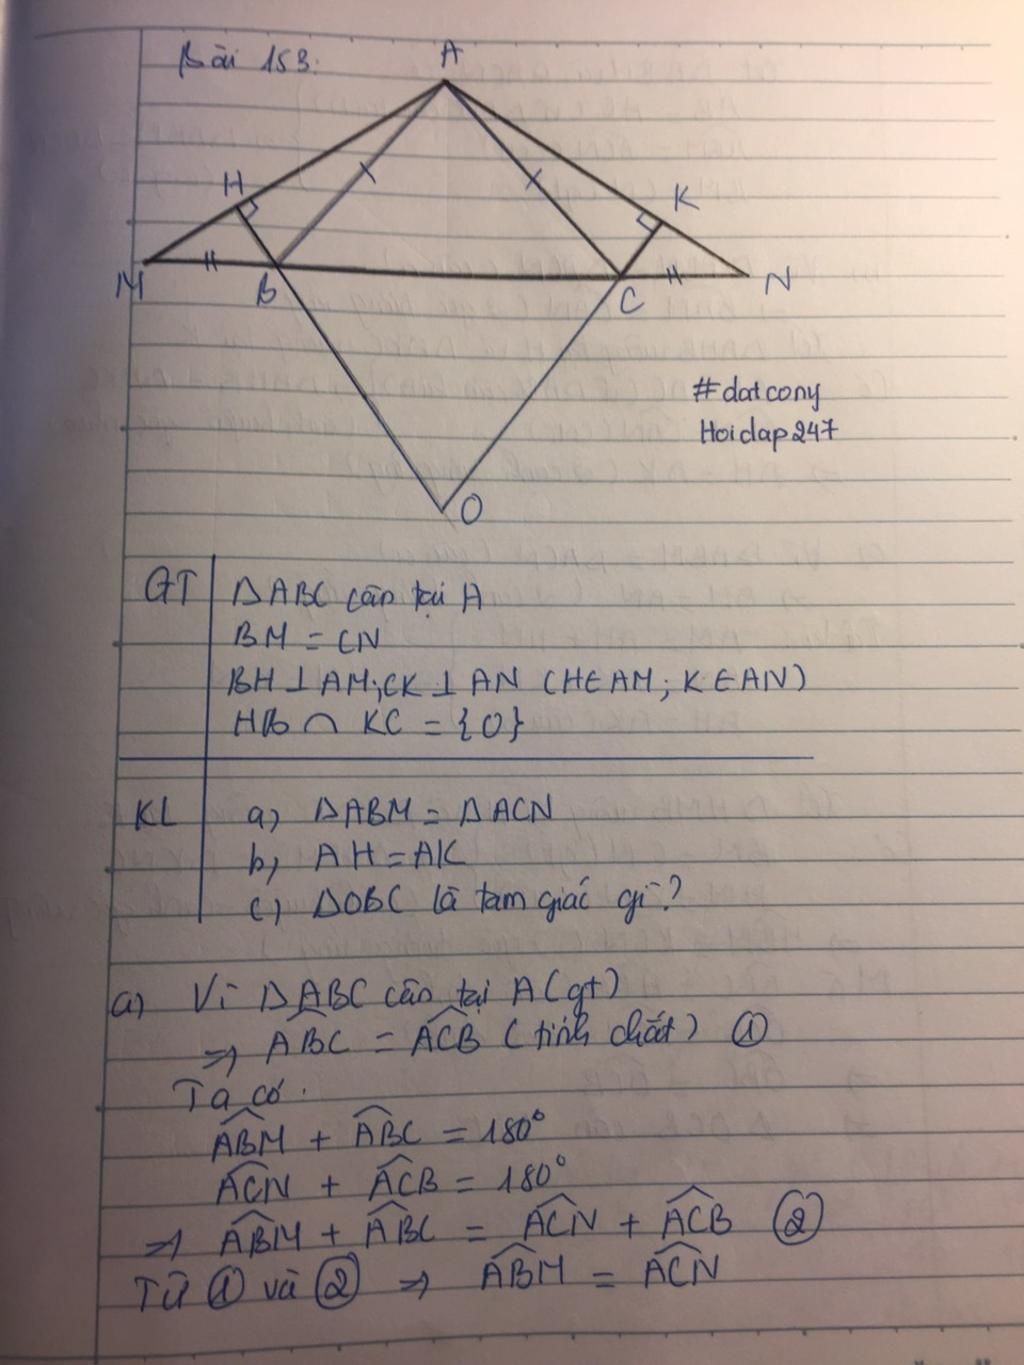 Bài 153:
A
H
K
M
B
C
N
#datcony
Hoidap247
O
GT | ΔABC cân tại A
BM = CN
BH ⊥ AM; CK ⊥ AN (H∈AM; K∈AN)
HB ∩ KC = {O}
KL | a) ΔABM = ΔACN
b) AH = AK
c) ΔOBC là tam giác gì?
a) Vì ΔABC cân tại A (gt)
=> \widehat{ABC} = \widehat{ACB} (tính chất) ①
Ta có:
\widehat{ABM} + \widehat{ABC} = 180°
\widehat{ACN} + \widehat{ACB} = 180°
=> \widehat{ABM} + \widehat{ABC} = \widehat{ACN} + \widehat{ACB} ②
Từ ① và ② => \widehat{ABM} = \widehat{ACN}